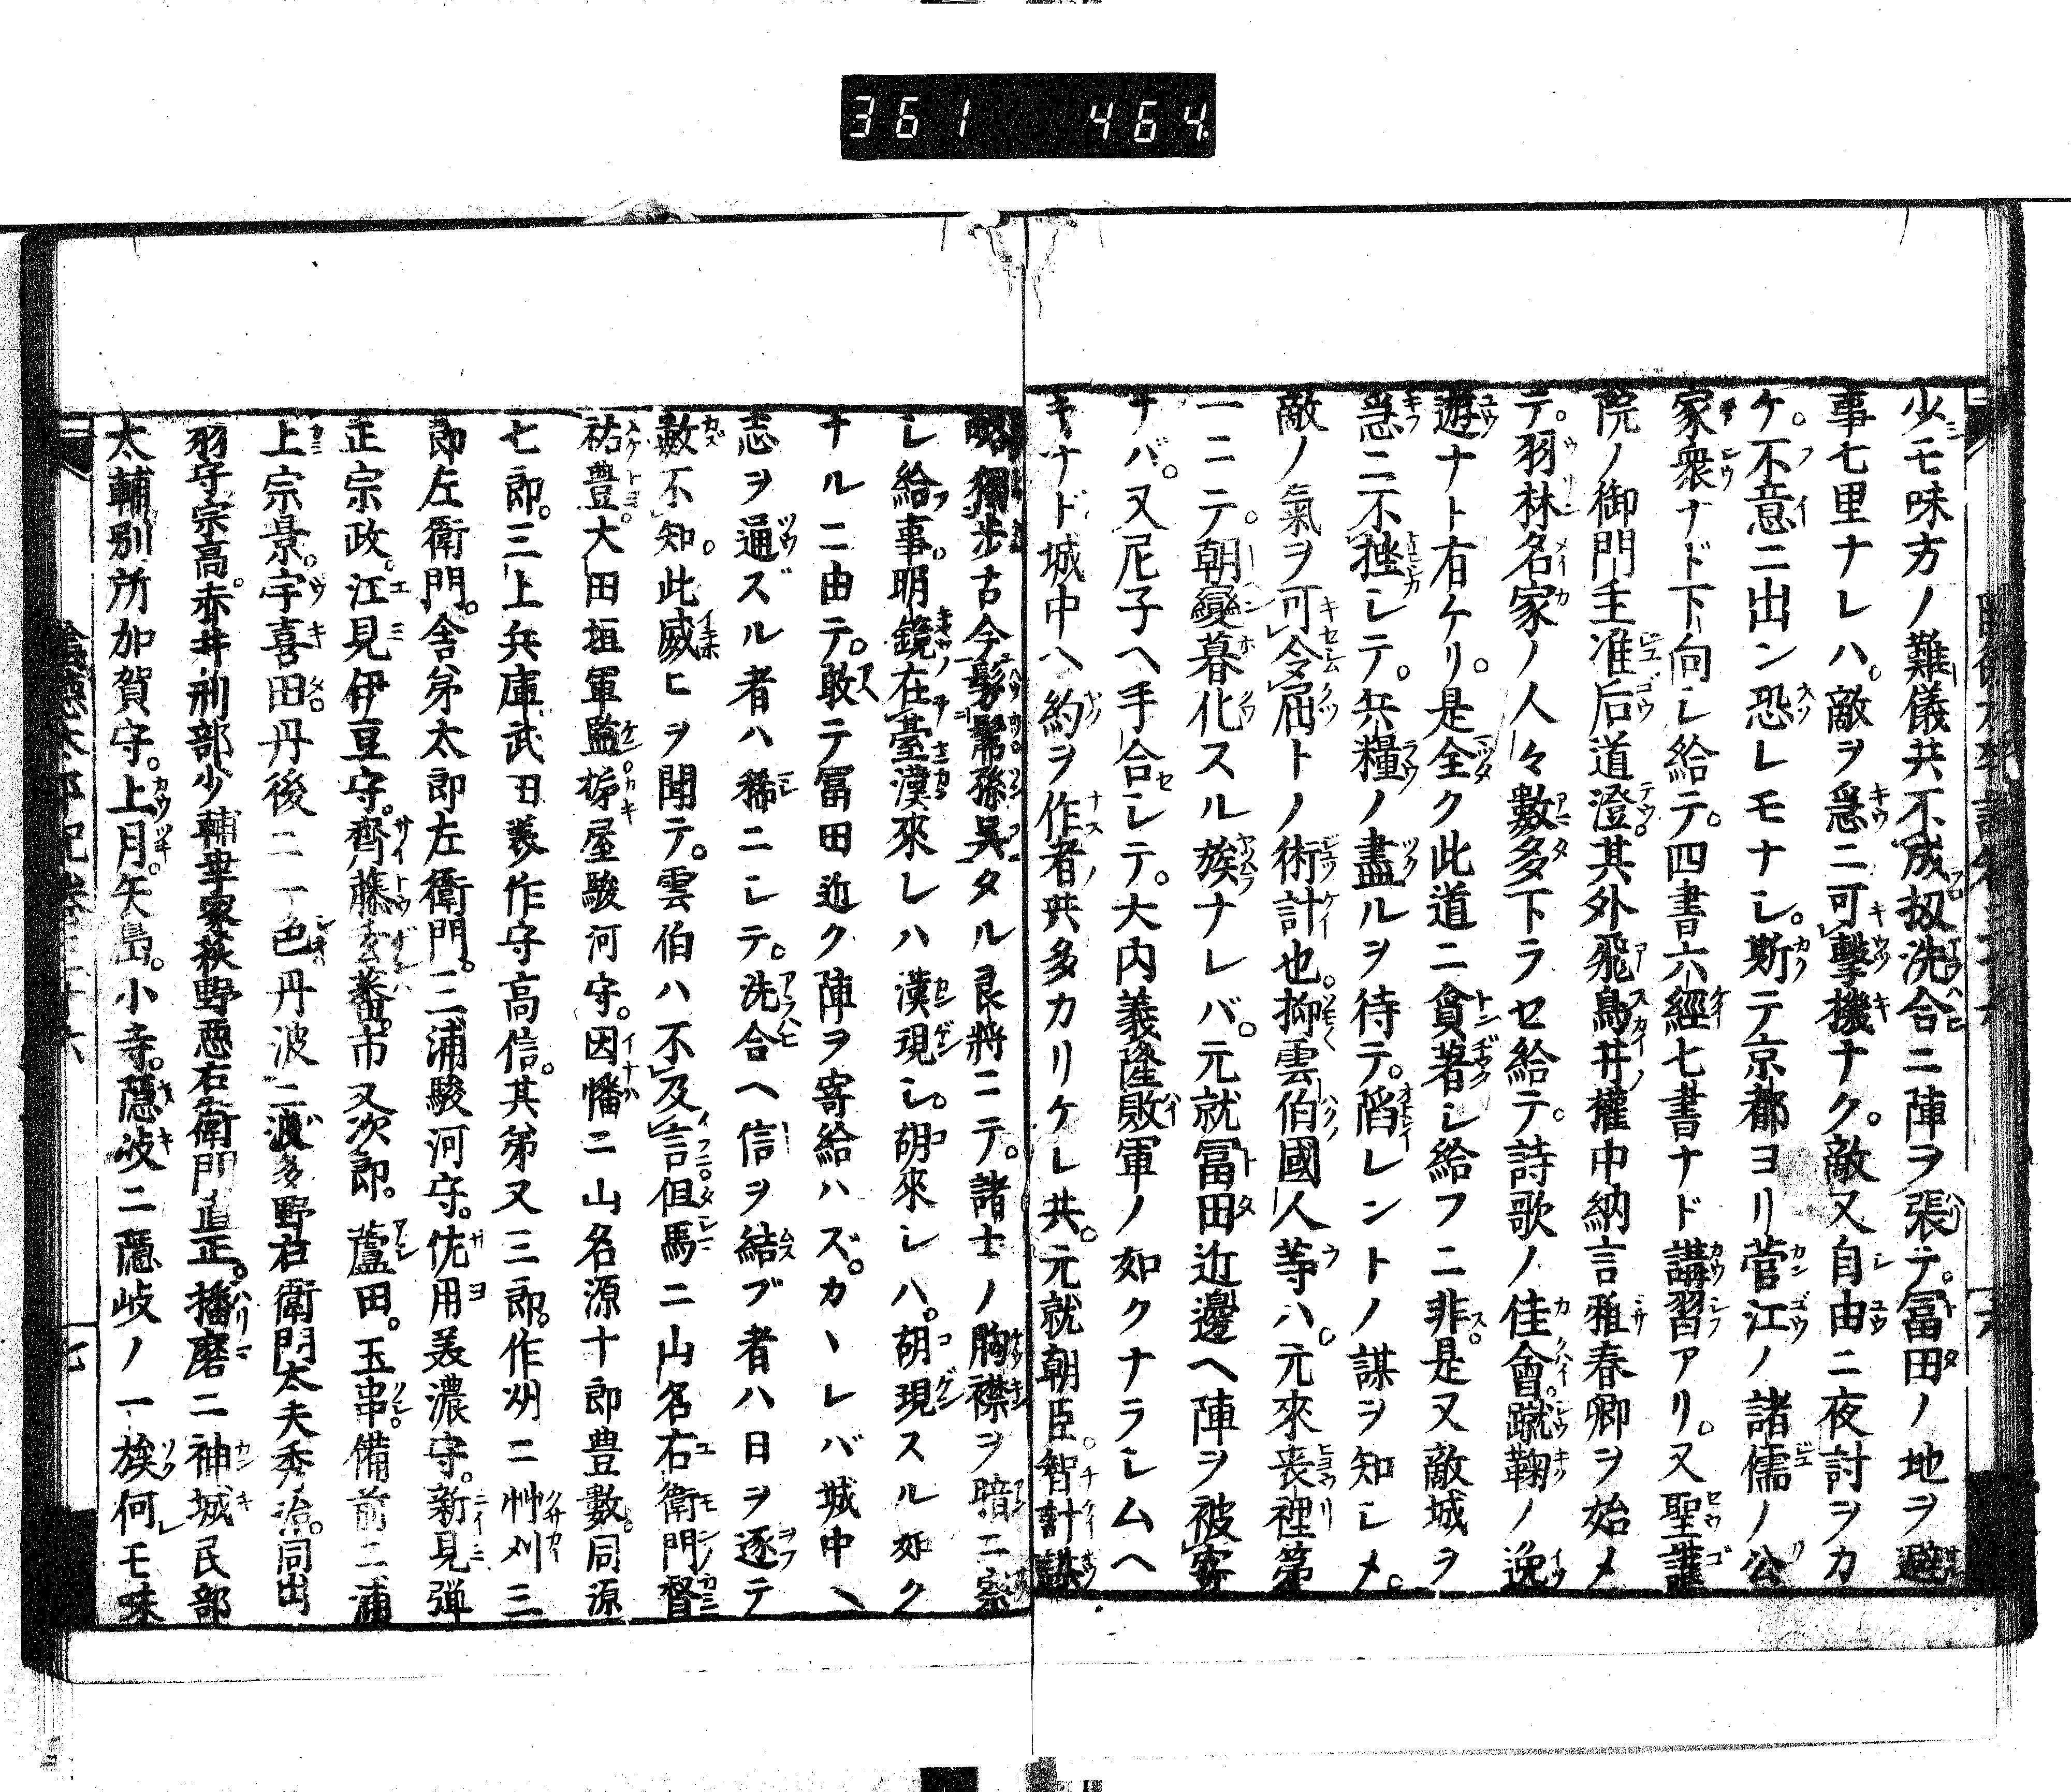 361 464
少モ味方ノ難儀共不成扨洗合ニ陣ヲ張テ。冨田ノ地ヲ避
事七里ナレハ。敵ヲ急ニ可撃機ナク。敵又自由ニ夜討ヲカ
ケ。不意ニ出ン恐レモナシ。斯テ京都ヨリ菅江ノ諸儒ノ公
家衆ナド下向シ給テ。四書六經七書ナド講習アリ。又聖護
院ノ御門主准后道澄。其外飛鳥井權中納言雅春卿ヲ始メ
テ。羽林名家ノ人々數多下ラセ給テ。詩歌ノ佳會。蹴鞠ノ逸
遊ナト有ケリ。是全ク此道ニ貪著シ給フニ非。是又敵城ヲ
急ニ不挫シテ。兵糧ノ盡ルヲ待テ。陷レントノ謀ヲ知シメ。
敵ノ氣ヲ可令屈トノ術計也。抑雲伯國人等ハ。元來表裡第
一ニテ。朝變暮化スル族ナレバ。元就冨田近邊ヘ陣ヲ被寄
ナバ。又尼子ヘ手合シテ。大内義隆敗軍ノ如クナラシムヘ
キナド城中ヘ約ヲ作者共多カリケレ共。元就朝臣。智計謀
略獨歩古今髣髴孫呉タル良將ニテ。諸士ノ胸襟ヲ暗ニ察
シ給事。明鏡在臺漢來レハ漢現シ。胡來レハ。胡現スル如ク
ナルニ由テ。敢テ冨田近ク陣ヲ寄給ハズ。カヽレバ城中ヘ
志ヲ通ズル者ハ稀ニシテ。洗合ヘ信ヲ結ブ者ハ日ヲ逐テ
數不知。此威ヒヲ聞テ。雲伯ハ不及言。但馬ニ山名右衛門督
祐豊。大田垣軍監。栃屋駿河守。因幡ニ山名源十郎豊數。同源
七郎。三上兵庫武田美作守高信。其弟又三郎。作州ニ艸刈三
郎左衛門。舎弟太郎左衛門。三浦駿河守。佐用美濃守。新見彈
正宗政。江見伊豆守。齊藤玄蕃。市又次郎。蘆田。玉串。備前ニ浦
上宗景。宇喜田丹後ニ一色丹波ニ波多野右衛門太夫秀治。同出
羽守宗高。赤井刑部少輔華家荻野悪右衛門直正。播磨ニ神城民部
太輔別所加賀守。上月。矢島。小寺。隱岐ニ隱岐ノ一族何レモ味
七